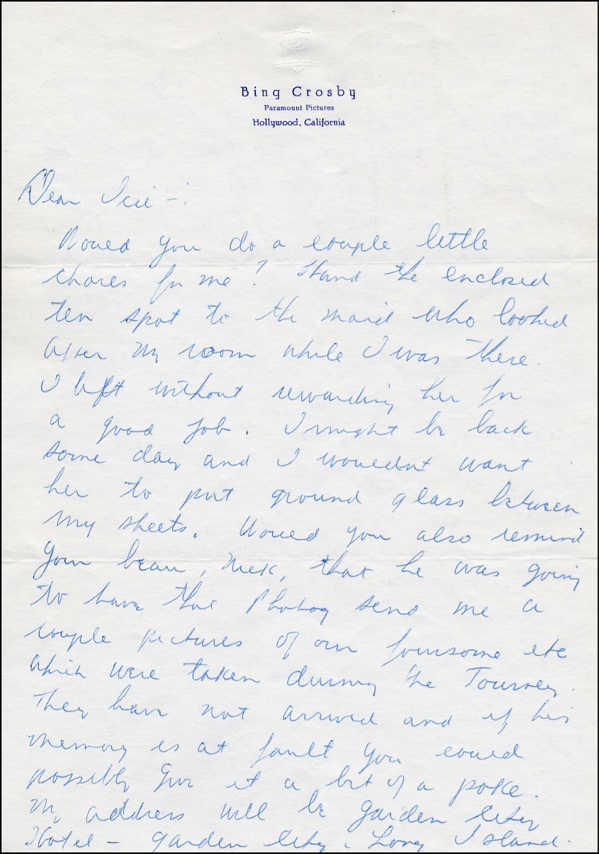 Bing Crosby
Paramount Pictures
Hollywood, California
Dear Icie -:
Would you do a couple little
chores for me? Hand the enclosed
ten spot to the maid who looked
after my room while I was there.
I left without rewarding her for
a good job. I might be back
some day and I wouldn't want
her to put ground glass between
my sheets. Would you also remind
your beau, Nick, that he was going
to have that Photog send me a
couple pictures of our foursome etc
which were taken during the Tourney.
They have not arrived and if his
memory is at fault you could
possibly give it a bit of a poke.
My address will be Garden City
Hotel - Garden City, Long Island.